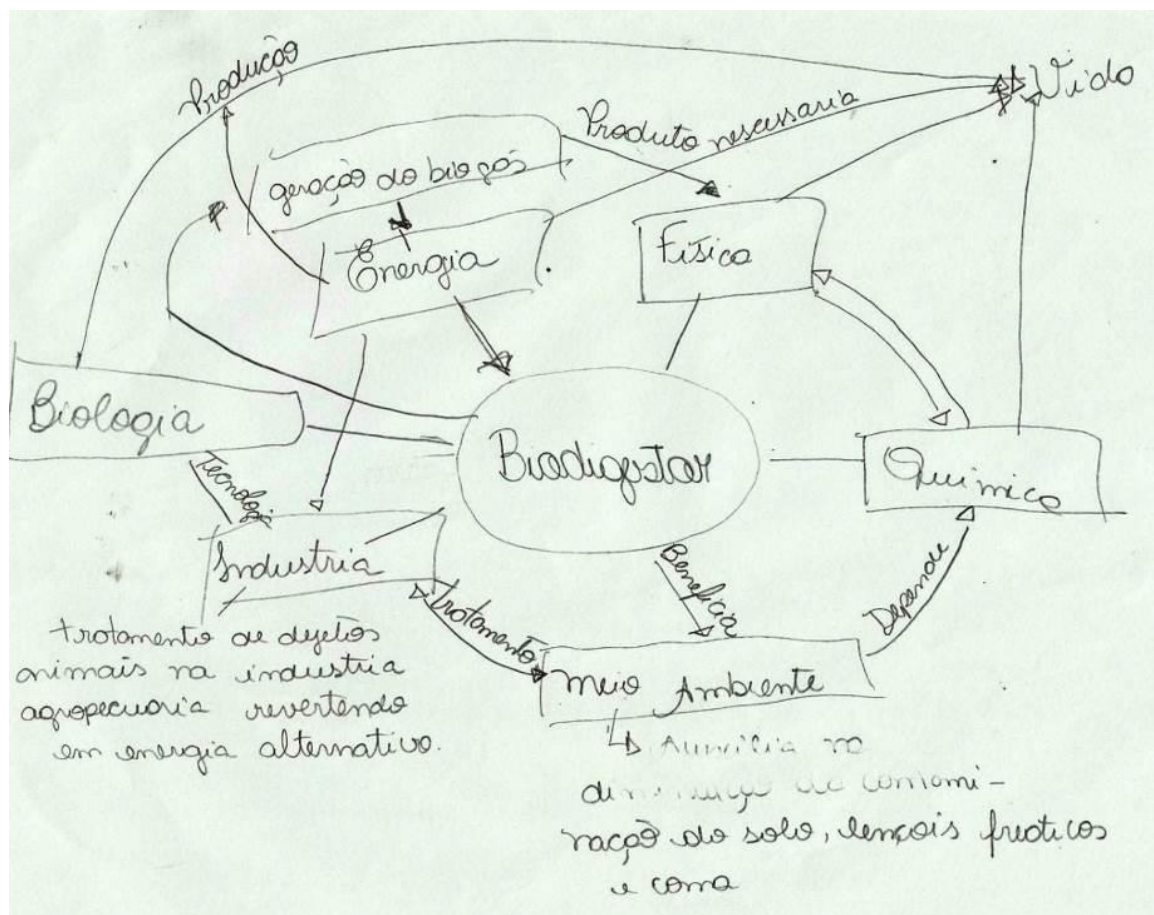 Produção
Vida
Produto nescessaria
geração do biogás
Energia
Física
Biologia
Biodigestor
Química
Tecnologi
Industria
Beneficia
Depende
Tratamento
Meio Ambiente
tratamento de dejetos
animais na industria
agropecuaria revertendo
em energia alternativa.
Auxilia na
contami-
nação do solo, lençois freaticos
e coma